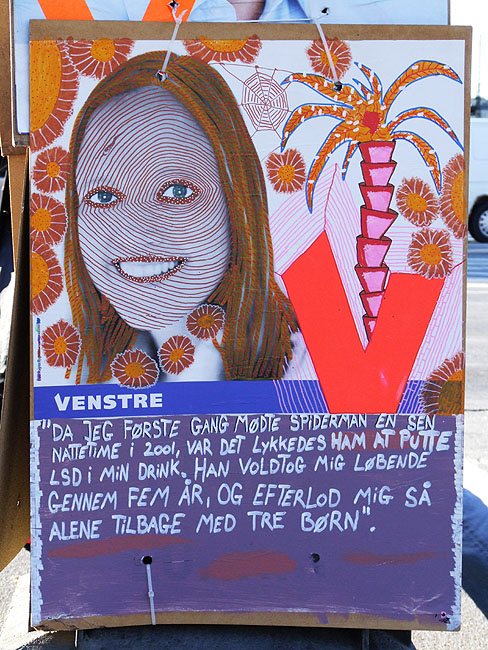 VENSTRE
"DA JEG FØRSTE GANG MØDTE SPIDERMAN EN SEN
NATTETIME i 2001, VAR DET LYKKEDES HAM AT PUTTE
LSD i MIN DRINK. HAN VOLDTOG MiG LØBENDE
GENNEM FEM ÅR, OG EFTERLOD MiG SÅ
ALENE TILBAGE MED TRE BØRN".